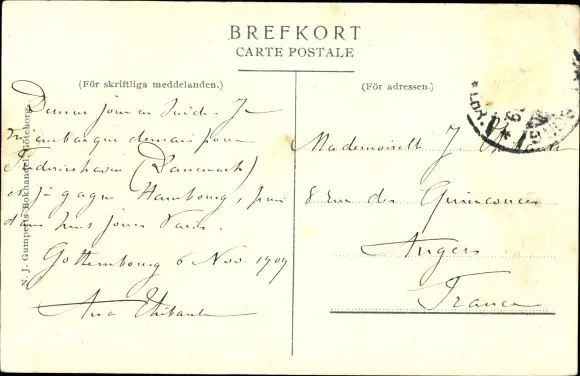 BREFKORT
CARTE POSTALE
(För skriftliga meddelanden.)
(För adressen.)
Dernier jour en Suède. Je
m'embarque demain pour
Frederikshavn (Danemark)
et je gagne Hambourg, puis
dans huit jours Paris.
Gothembourg 6 Nov. 1909
Thibault
Mademoiselle J. Thibault
8 rue des Quinconces
Angers
France
N. J. Gumperts Bokhandel, Göteborg.